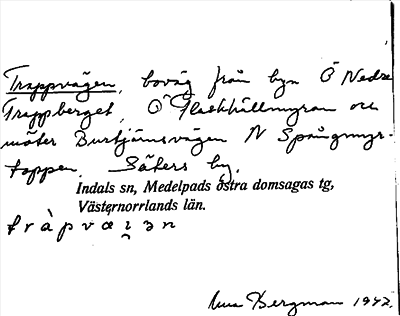 Trappvägen, boväg från byn Ö Nedre
Trappberget, Ö Flackhällmyran och
möter Burtjärnsvägen N Spångmyr-
toppen. Säters by.
Indals sn, Medelpads östra domsagas tg,
Västernorrlands län.
tràpvæi̯ən
Bergman 1942.